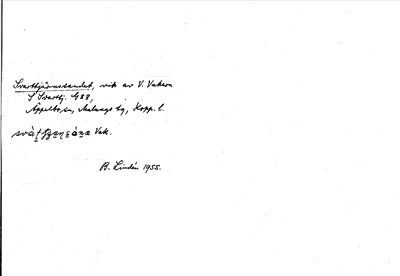 Svarttjärnssandet, vik av V. Vakern
S Svarttj. 488,
Äppelbo sn, Malungs tg, Kopp. l.
Vak.
B. Lindén 1955.